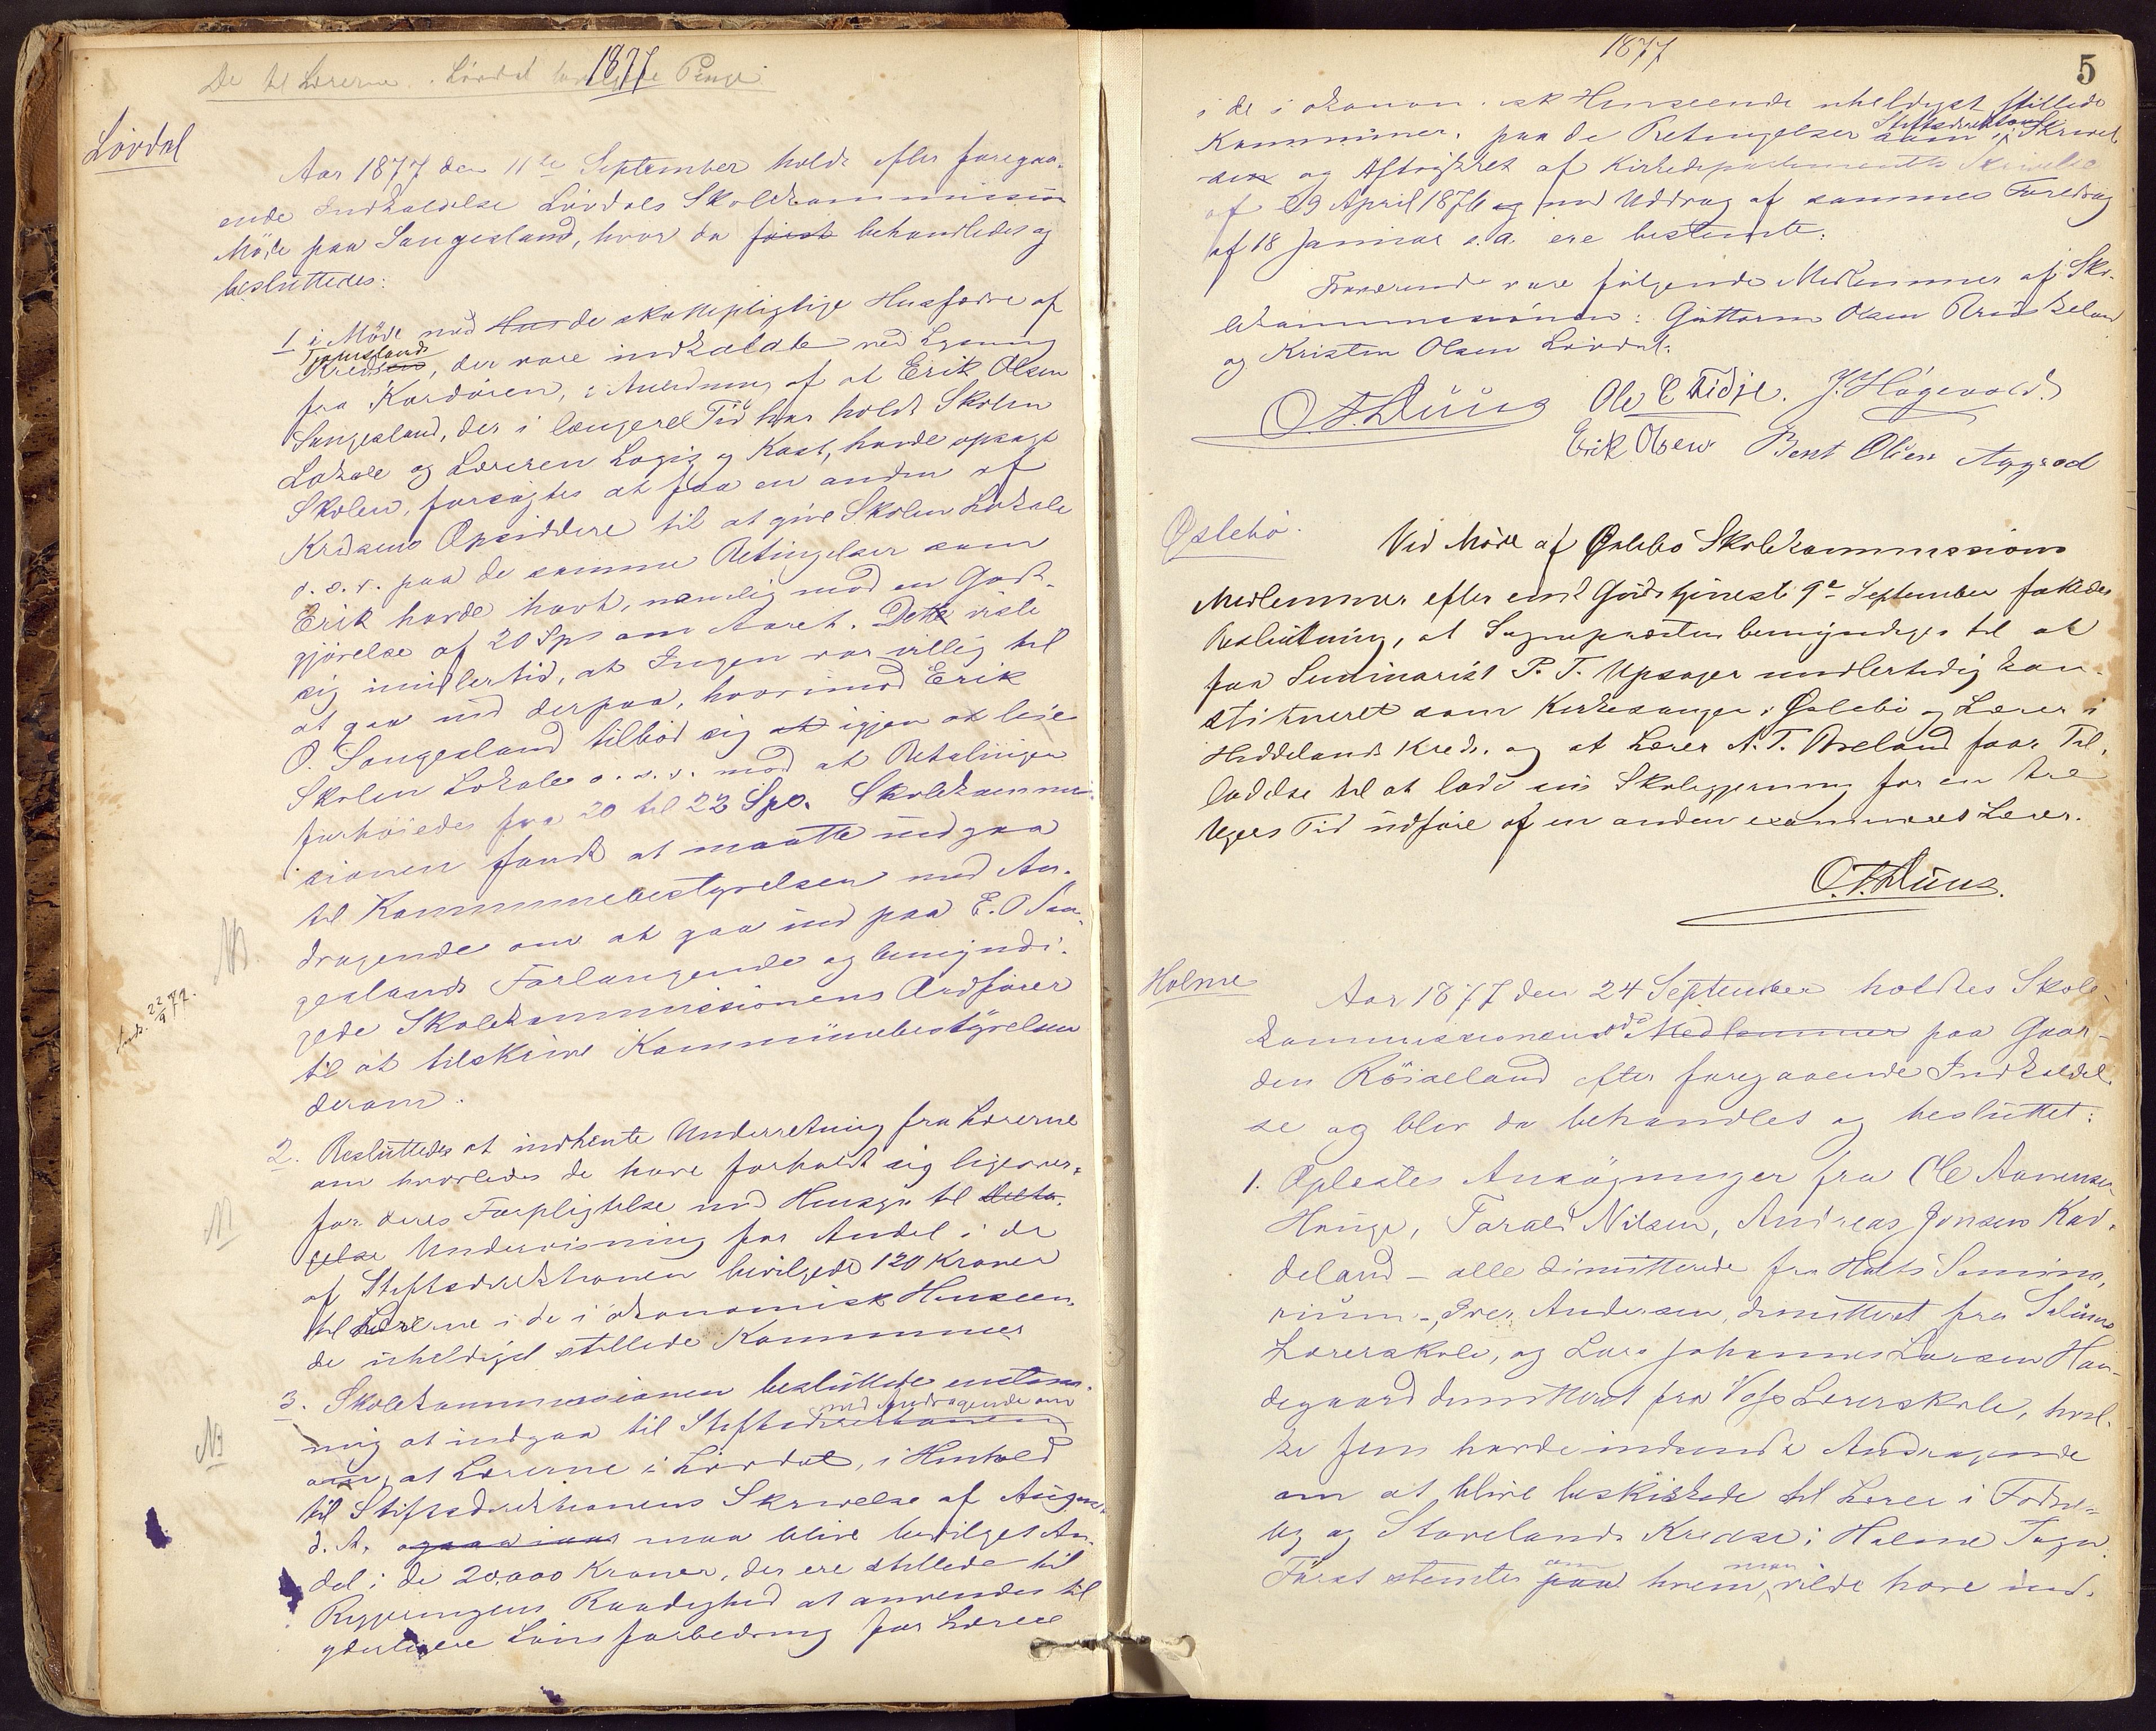 1877
De til Lærerne i Lövdal bevilgede Penge
Lövdal
Aar 1877 den 11te September holdt efter foregaa-
ende Indkaldelse Lövdals Skolekommission
Möde paa Sangesland, hvor da först behandledes og
besluttedes:
1 i Möde med Hus de skattepligtige Husfædre af
Kredsen, der vare indkaldte ved Lysning
fra Kordören, i Anledning af at Erik Olsen
Sangesland, der i længere Tid har holdt Skolen
Lokale og Læreren Logis og Kost, havde opsagt
Skolen, forsögtes at faa en anden af
Kredsens Opsiddere til at give Skolen Lokale
o. s. v. paa de samme Betingelser som
Erik havde havt, nemlig mod en Godt-
gjörelse af 20 Spd om Aaret. Dette viste
sig imidlertid, at Ingen var villig til
at gaa ind derpaa, hvorimod Erik
O. Sangesland tilböd sig at igjen at leie
Skolen Lokale o. s. v. mod at Betalingen
forhöiedes fra 20 til 22 Spd. Skolekommis-
sionen fandt at maatte indgaa
til Kommunebestyrelsen med An-
dragende om at gaa ind paa E. O. San-
geslands Forlangende og bemyndi-
gede Skolekommissionens Ordförer
til at tilskrive Kommunebestyrelsen
derom.
NB.
22/9 77.
2. Besluttedes at indhente Underretning fra Lærerne
om hvorledes de have forholdt sig ligeover-
for deres Forpligtelse med Hensyn til
Undervisning for Andel i de
af Stiftsdirektionen bevilgede 120 Kroner
til Lærerne i de i ökonomisk Henseen-
de uheldigst stillede Kommuner
3. Skolekommissionen besluttede enstem-
med Andragende om
mig at indgaa til Stiftsdirektionen
om, at Lærerne i Lövdal, i Henhold
til Stiftsdirektionens Skrivelse af August
d. A. maa blive bevilget An-
del i de 20,000 Kroner, der ere stillede til
Regjeringens Raadighed at anvendes til
yderligere Lönsforbedring for Lærere
1877
5
i de i ökonomisk Henseende uheldigst stillede
Kommuner, paa de Betingelser som i Stiftsdirektionens Skrivel-
sen og Aftrykket af Kirkedepartementets Skrivelse
af 29 April 1876 og med Uddrag af sammes Foredrag
af 18 Januar s. a. ere bestemte.
Fraværende vare fölgende Medlemmer af Sko-
lekommissionen: Guttorm Olsen
og Kristen Olsen Lövdal.
O. F. Duus Ole C Tidje. J. Högevold.
Erik Olsen Bent Olsen
Öslebö.
Ved Möde af Öslebö Skolekommissions
Medlemmer efter endt Gudstjeneste 9de September fattedes
Beslutning, at Sognepræsten bemyndiges til at
faa Seminarist P. T. Upsager midlertidig kon-
stitueret som Kirkesanger i Öslebö og Lærer i
Heddelands Kreds. og at Lærer A. T. Breland faar Til-
ladelse til at lade sin Skolegjerning for en tre
Ugers Tid udföre af en anden examineret Lærer.
O. F. Duus.
Holme
Aar 1877 den 24 September holdtes Skole-
kommissionens Möde Medlemmer paa Gaar-
den Röiseland efter foregaaende Indkaldel-
se og blev da behandlet og besluttet:
1. Oplæstes Ansögninger fra Ole Aanensen
Hauge, Tarald Nilsen, Andreas Jensen Kad-
deland - alle dimitterede fra Holts Semina-
rium, Iver Andersen, dimitteret fra
Lærerskole, og Lars Johannes Larsen Hau-
degaard dimitteret fra Voss Lærerskole, hvil-
ke fem havde indsendt Andragende
om at blive beskikkede til Lærer i
og Skovelands Kredse i Holme Sogn.
Först stemtes paa om hvem man vilde have ind-